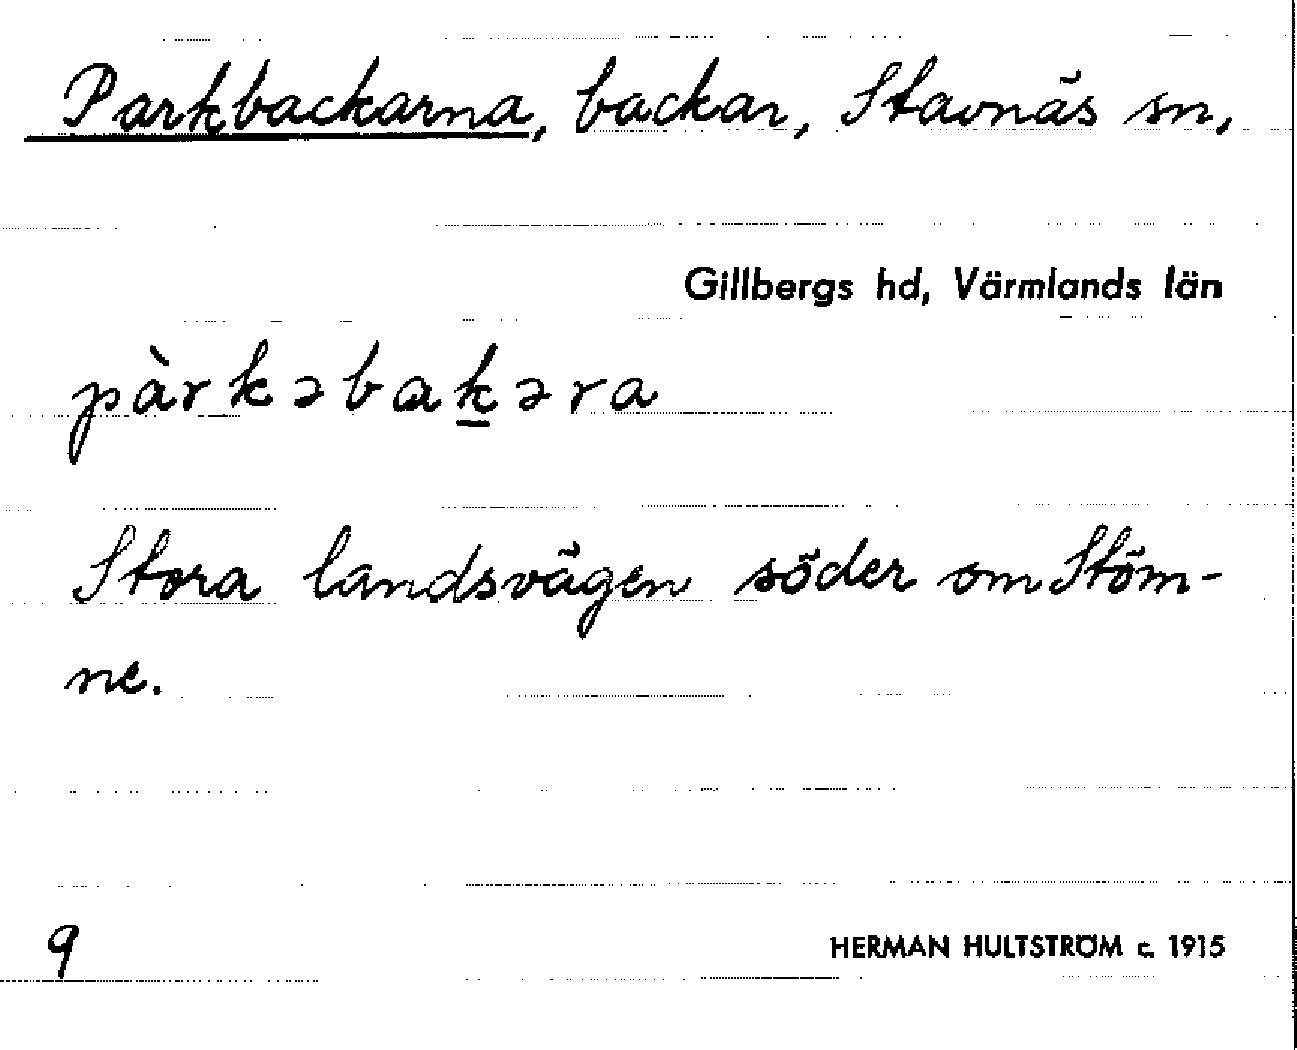 Parkbackarna, backar, Stavnäs sn,
Gillbergs hd, Värmlands län
pàrkəbak̲əra
Stora landsvägen söder om Stöm-
ne.
9
HERMAN HULTSTRÖM c. 1915